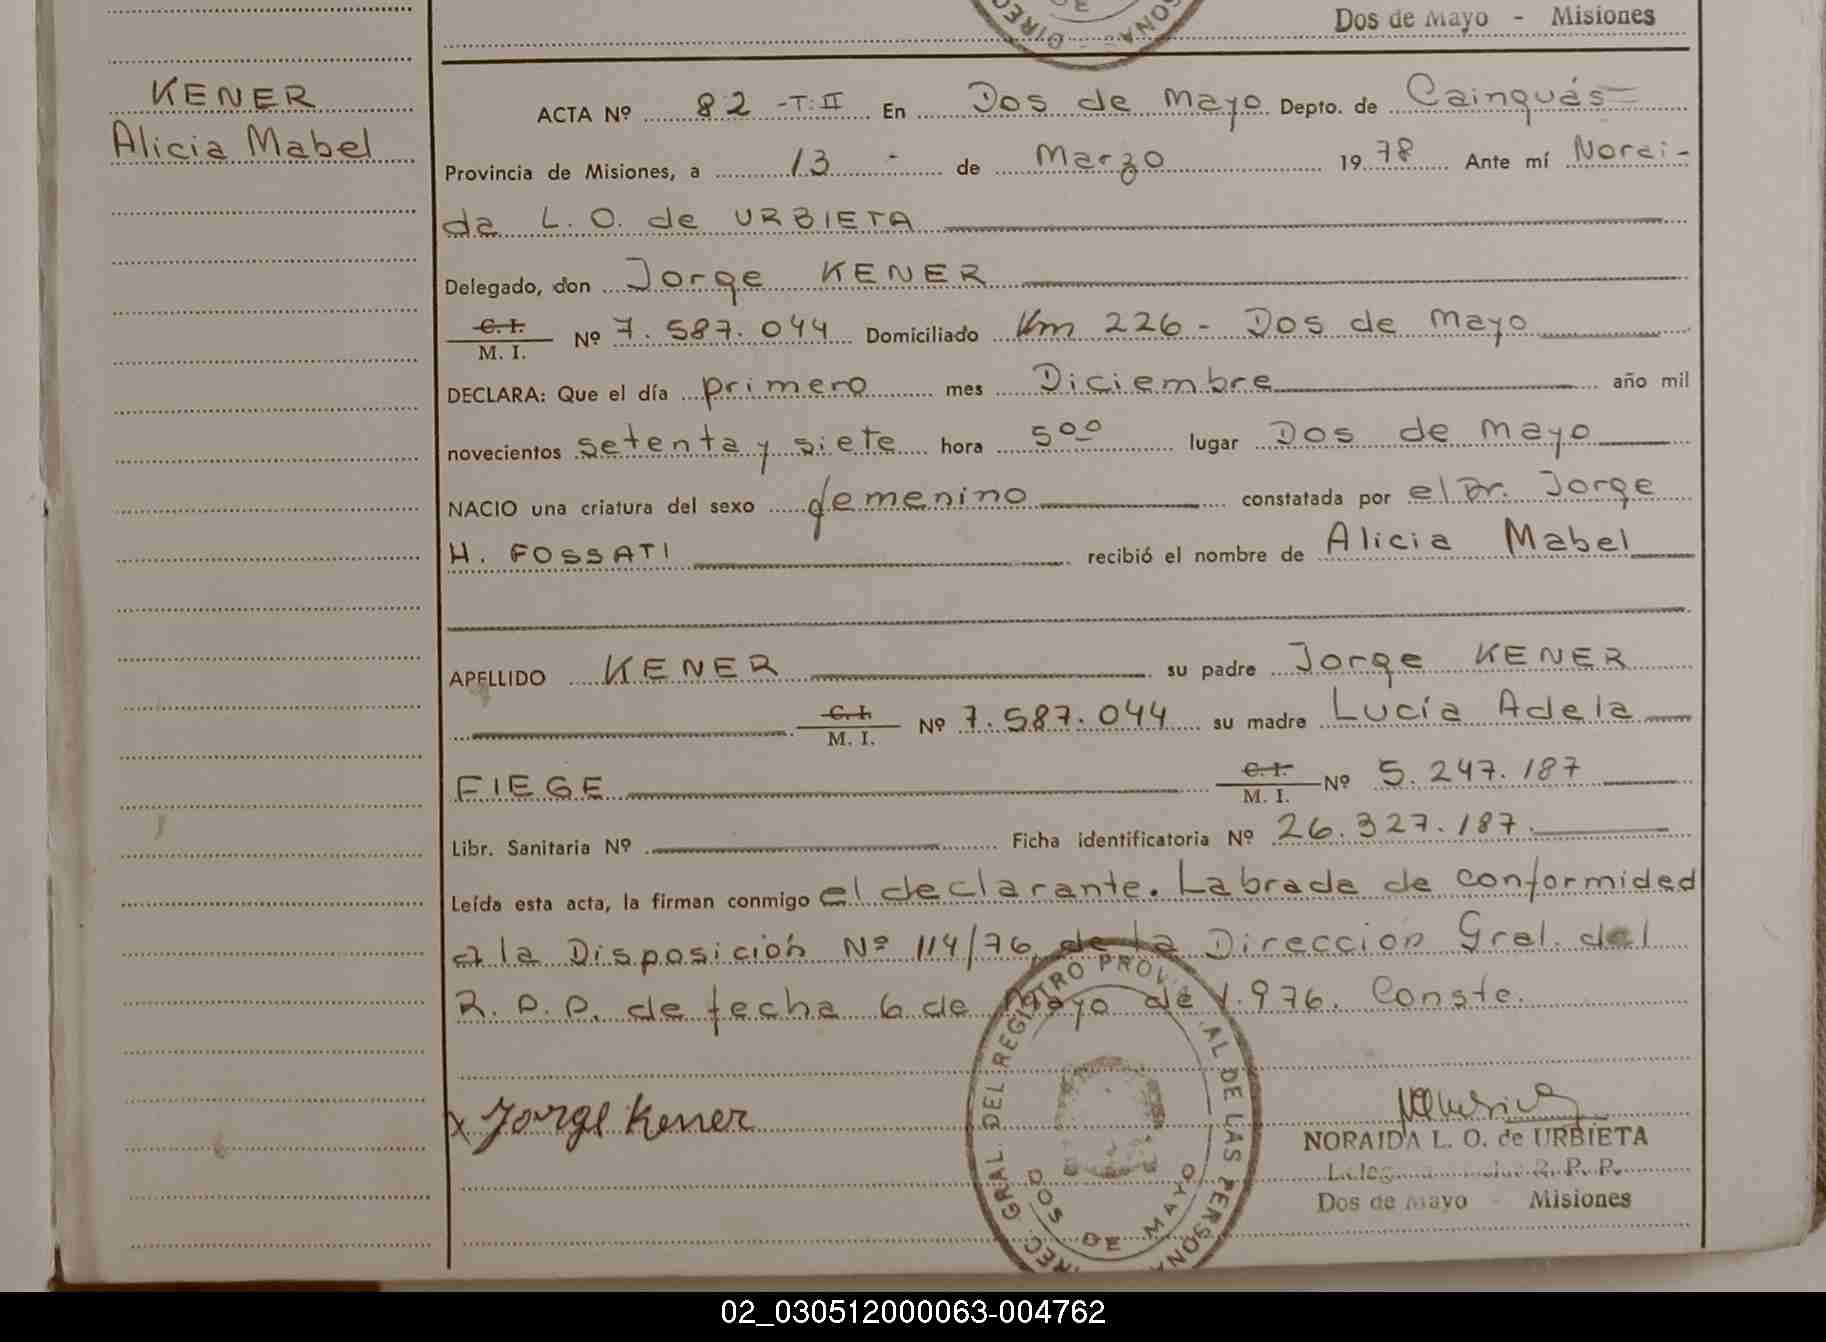 Dos de Mayo - Misiones
KENER
Alicia Mabel
ACTA Nº 82 -T: II En Dos de Mayo Depto. de Cainguás
Provincia de Misiones, a 13 - de Marzo 1978 Ante mí Norai-
da L. O. de URBIETA
Delegado, don Jorge KENER
C. I. / M. I. Nº 7.587.044 Domiciliado Km 226 - Dos de Mayo
DECLARA: Que el día primero mes Diciembre año mil
novecientos setenta y siete hora 5 00 lugar Dos de Mayo
NACIO una criatura del sexo femenino constatada por el Dr. Jorge
H. FOSSATI recibió el nombre de Alicia Mabel
APELLIDO KENER su padre Jorge KENER
C. I. / M. I. Nº 7.587.044 su madre Lucía Adela
FIEGE C. I. / M. I. Nº 5.247.187
Libr. Sanitaria Nº Ficha identificatoria Nº 26.327.187.
Leída esta acta, la firman conmigo el declarante. Labrada de conformidad
a la Disposición Nº 114/76, de la Dirección Gral. del
R. P. P. de fecha 6 de Mayo de 1.976. Conste.
x Jorge Kener
DIREC. GRAL. DEL REGISTRO PROVINCIAL DE LAS PERSONAS
DOS DE MAYO
NORAIDA L. O. de URBIETA
R. P. P.
Dos de Mayo - Misiones
02_030512000063-004762